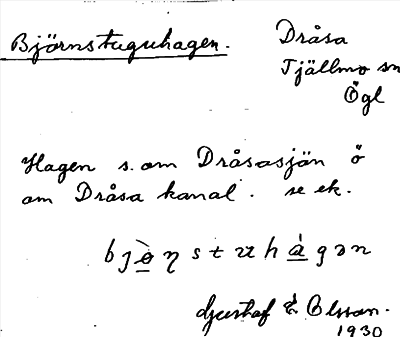 Björnstuguhagen.
Dråsa
Tjällmo sn
Ögl
Hagen s. om Dråsasjön ö
om Dråsa kanal. se ek.
Gustaf E Olsson.
1930